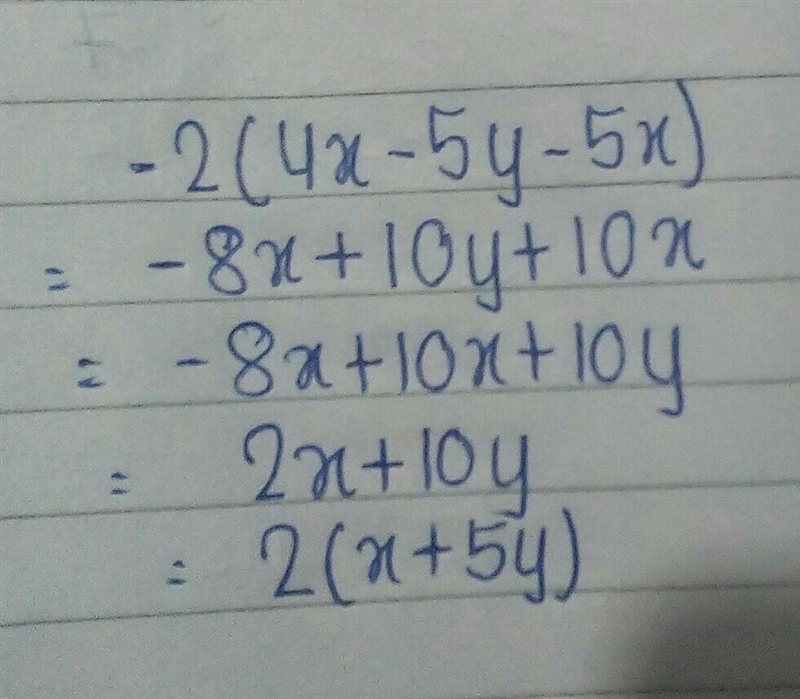 -2(4x-5y-5x)
= -8x+10y+10x
= -8x+10x+10y
= 2x+10y
= 2(x+5y)